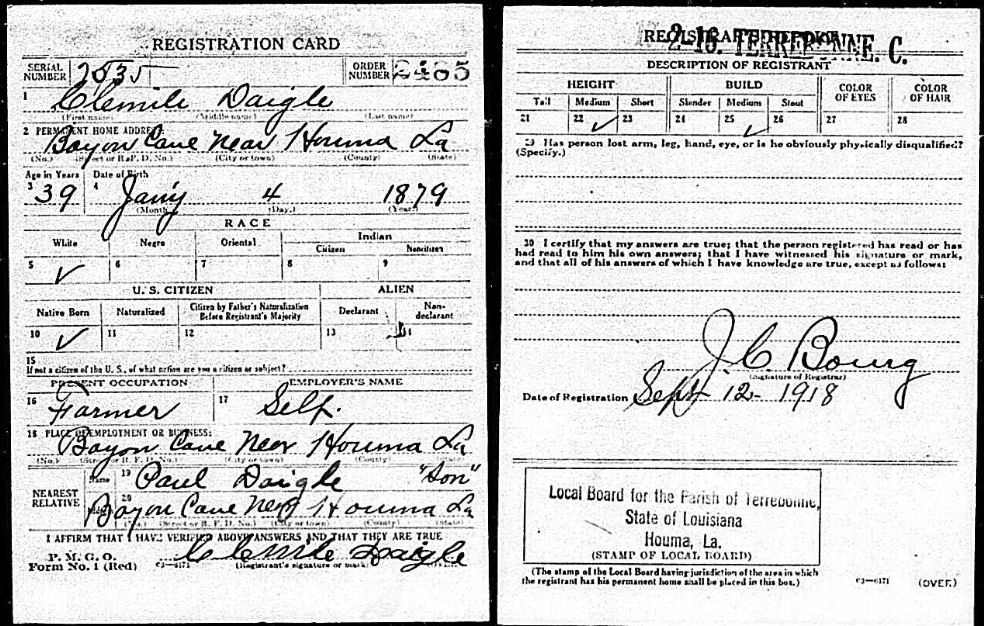 REGISTRATION CARD
SERIAL NUMBER 2535 ORDER NUMBER 2485
1 Clemile Daigle
(First name) (Middle name) (Last name)
2 PERMANENT HOME ADDRESS:
Bayou Cane Near Houma La
(No.) (Street or R. F. D. No.) (City or town) (County) (State)
Age in Years Date of Birth
3 39 4 Jan'y 4 1879
(Month.) (Day.) (Year.)
RACE
White Negro Oriental Indian
Citizen Noncitizen
5 ✓ 6 7 8 9
U. S. CITIZEN ALIEN
Native Born Naturalized Citizen by Father's Naturalization Before Registrant's Majority Declarant Non-declarant
10 ✓ 11 12 13 14
15
If not a citizen of the U. S., of what nation are you a citizen or subject?
PRESENT OCCUPATION EMPLOYER'S NAME
16 Farmer 17 Self.
18 PLACE OF EMPLOYMENT OR BUSINESS:
Bayou Cane Near Houma La
(No.) (Street or R. F. D. No.) (City or town) (County) (State)
NEAREST RELATIVE
Name 19 Paul Daigle "Son"
Address 20 Bayou Cane Near Houma La
(No.) (Street or R. F. D. No.) (City or town) (County) (State)
I AFFIRM THAT I HAVE VERIFIED ABOVE ANSWERS AND THAT THEY ARE TRUE
P. M. G. O.
Form No. 1 (Red) C3—6171 Clemile Daigle
(Registrant's signature or mark) (OVER)
REGISTRAR'S REPORT
2-16. TERREBONNE. C.
DESCRIPTION OF REGISTRANT
HEIGHT BUILD COLOR OF EYES COLOR OF HAIR
Tall Medium Short Slender Medium Stout
21 22 ✓ 23 24 25 ✓ 26 27 28
29 Has person lost arm, leg, hand, eye, or is he obviously physically disqualified?
(Specify.)
30 I certify that my answers are true; that the person registered has read or has
had read to him his own answers; that I have witnessed his signature or mark,
and that all of his answers of which I have knowledge are true, except as follows:
J. C. Bourg
(Signature of Registrar)
Date of Registration Sept 12- 1918
Local Board for the Parish of Terrebonne,
State of Louisiana
Houma, La.
(STAMP OF LOCAL BOARD)
(The stamp of the Local Board having jurisdiction of the area in which
the registrant has his permanent home shall be placed in this box.)
C3—6171 (OVER)